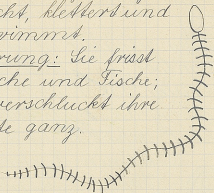 cht, klettert und
wimmt.
rung: Sie frisst
che und Fische;
verschluckt ihre
te ganz.